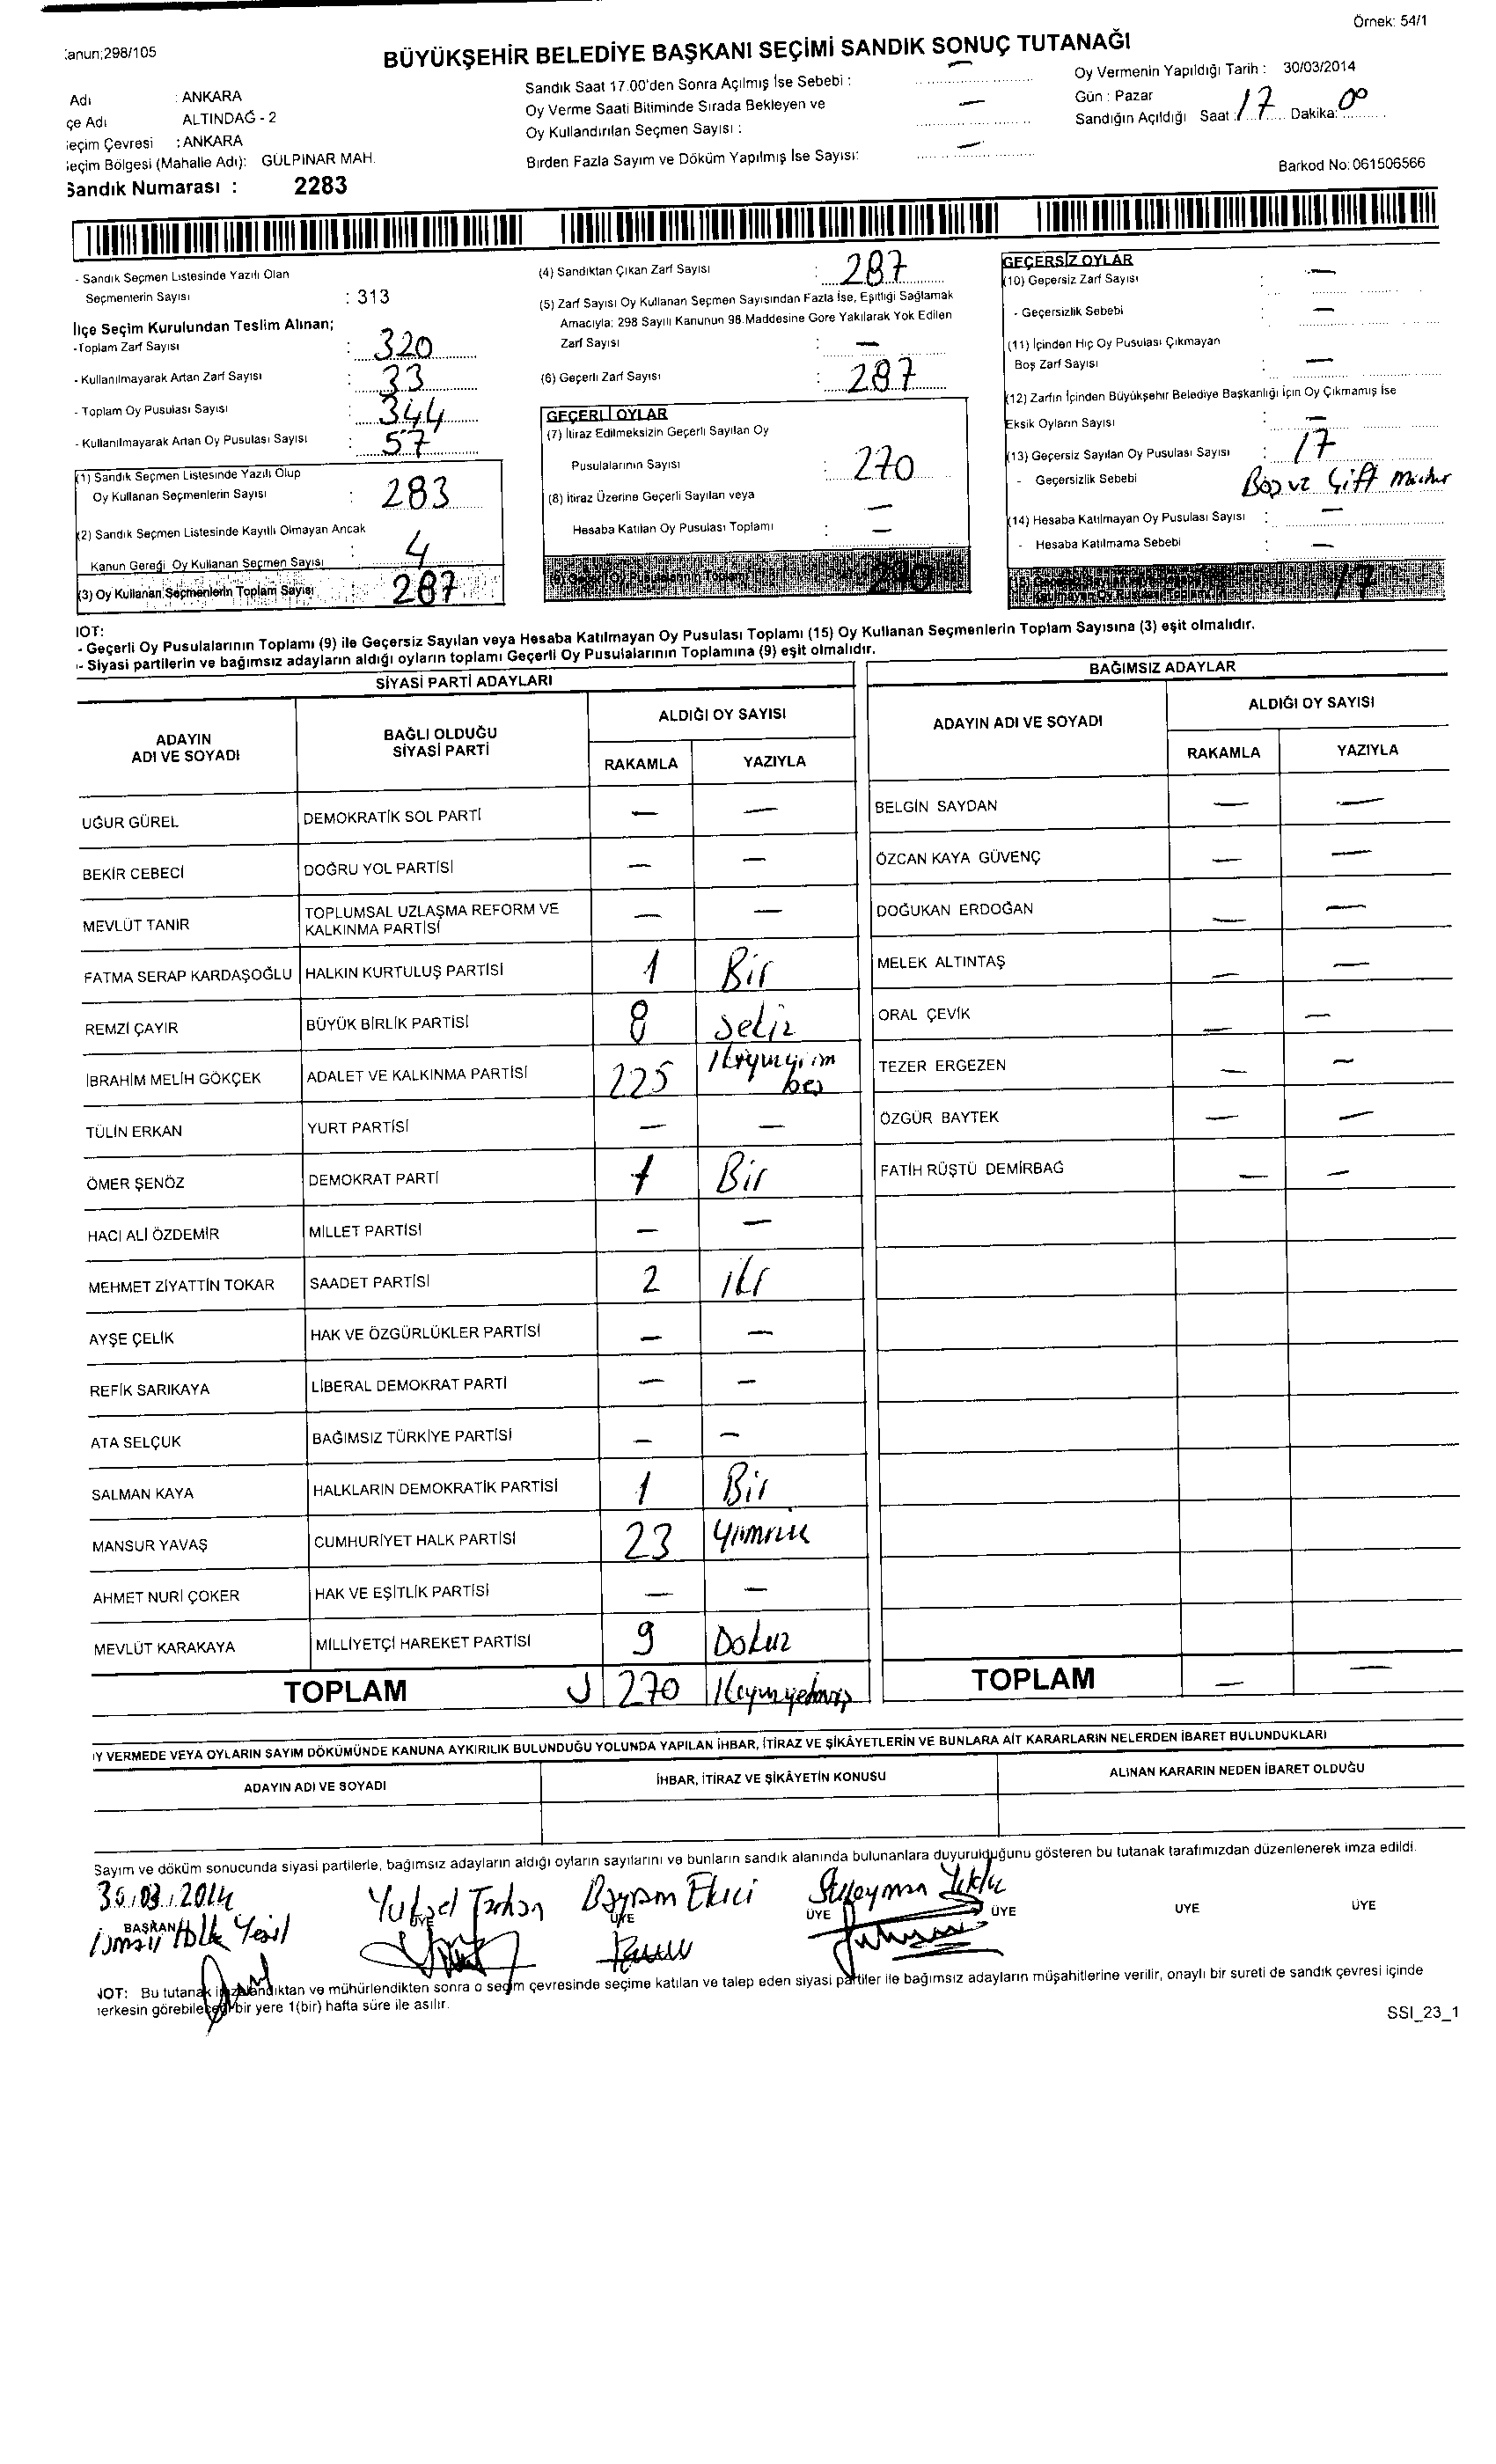 Örnek: 54/1
:anun;298/105
BÜYÜKŞEHİR BELEDİYE BAŞKANI SEÇİMİ SANDIK SONUÇ TUTANAĞI
Adı : ANKARA
çe Adı ALTINDAĞ - 2
eçim Çevresi : ANKARA
eçim Bölgesi (Mahalle Adı): GÜLPINAR MAH.
Sandık Numarası : 2283
Sandık Saat 17.00'den Sonra Açılmış İse Sebebi : —
Oy Verme Saati Bitiminde Sırada Bekleyen ve
Oy Kullandırılan Seçmen Sayısı : —
Birden Fazla Sayım ve Döküm Yapılmış İse Sayısı: —
Oy Vermenin Yapıldığı Tarih : 30/03/2014
Gün : Pazar
Sandığın Açıldığı Saat : 17 Dakika: 00
Barkod No: 061506566
- Sandık Seçmen Listesinde Yazılı Olan
Seçmenlerin Sayısı : 313
İlçe Seçim Kurulundan Teslim Alınan;
-Toplam Zarf Sayısı : 320
- Kullanılmayarak Artan Zarf Sayısı : 33
- Toplam Oy Pusulası Sayısı : 344
- Kullanılmayarak Artan Oy Pusulası Sayısı : 57
(1) Sandık Seçmen Listesinde Yazılı Olup
Oy Kullanan Seçmenlerin Sayısı : 283
(2) Sandık Seçmen Listesinde Kayıtlı Olmayan Ancak
Kanun Gereği Oy Kullanan Seçmen Sayısı : 4
(3) Oy Kullanan Seçmenlerin Toplam Sayısı : 287
(4) Sandıktan Çıkan Zarf Sayısı : 287
(5) Zarf Sayısı Oy Kullanan Seçmen Sayısından Fazla İse, Eşitliği Sağlamak
Amacıyla; 298 Sayılı Kanunun 98.Maddesine Göre Yakılarak Yok Edilen
Zarf Sayısı : —
(6) Geçerli Zarf Sayısı : 287
GEÇERLİ OYLAR
(7) İtiraz Edilmeksizin Geçerli Sayılan Oy
Pusulalarının Sayısı : 270
(8) İtiraz Üzerine Geçerli Sayılan veya —
Hesaba Katılan Oy Pusulası Toplamı : —
(9) Geçerli Oy Pusulalarının Toplamı 270
GEÇERSİZ OYLAR
(10) Geçersiz Zarf Sayısı : —
- Geçersizlik Sebebi : —
(11) İçinden Hiç Oy Pusulası Çıkmayan
Boş Zarf Sayısı : —
(12) Zarfın İçinden Büyükşehir Belediye Başkanlığı İçin Oy Çıkmamış İse
Eksik Oyların Sayısı : —
(13) Geçersiz Sayılan Oy Pusulası Sayısı : 17
- Geçersizlik Sebebi Boş ve Çift
(14) Hesaba Katılmayan Oy Pusulası Sayısı : —
- Hesaba Katılmama Sebebi : —
17
IOT:
- Geçerli Oy Pusulalarının Toplamı (9) ile Geçersiz Sayılan veya Hesaba Katılmayan Oy Pusulası Toplamı (15) Oy Kullanan Seçmenlerin Toplam Sayısına (3) eşit olmalıdır.
- Siyasi partilerin ve bağımsız adayların aldığı oyların toplamı Geçerli Oy Pusulalarının Toplamına (9) eşit olmalıdır.
SİYASİ PARTİ ADAYLARI
ADAYIN ADI VE SOYADI BAĞLI OLDUĞU SİYASİ PARTİ ALDIĞI OY SAYISI
RAKAMLA YAZIYLA
UĞUR GÜREL DEMOKRATİK SOL PARTİ — —
BEKİR CEBECİ DOĞRU YOL PARTİSİ — —
MEVLÜT TANIR TOPLUMSAL UZLAŞMA REFORM VE KALKINMA PARTİSİ — —
FATMA SERAP KARDAŞOĞLU HALKIN KURTULUŞ PARTİSİ 1 Bir
REMZİ ÇAYIR BÜYÜK BİRLİK PARTİSİ 8 Sekiz
İBRAHİM MELİH GÖKÇEK ADALET VE KALKINMA PARTİSİ 225 beş
TÜLİN ERKAN YURT PARTİSİ — —
ÖMER ŞENÖZ DEMOKRAT PARTİ 1 Bir
HACI ALİ ÖZDEMİR MİLLET PARTİSİ — —
MEHMET ZİYATTİN TOKAR SAADET PARTİSİ 2 iki
AYŞE ÇELİK HAK VE ÖZGÜRLÜKLER PARTİSİ — —
REFİK SARIKAYA LİBERAL DEMOKRAT PARTİ — —
ATA SELÇUK BAĞIMSIZ TÜRKİYE PARTİSİ — —
SALMAN KAYA HALKLARIN DEMOKRATİK PARTİSİ 1 Bir
MANSUR YAVAŞ CUMHURİYET HALK PARTİSİ 23
AHMET NURİ ÇOKER HAK VE EŞİTLİK PARTİSİ — —
MEVLÜT KARAKAYA MİLLİYETÇİ HAREKET PARTİSİ 9 Dokuz
TOPLAM 270 ikiyüzyetmiş
BAĞIMSIZ ADAYLAR
ADAYIN ADI VE SOYADI ALDIĞI OY SAYISI
RAKAMLA YAZIYLA
BELGİN SAYDAN — —
ÖZCAN KAYA GÜVENÇ — —
DOĞUKAN ERDOĞAN — —
MELEK ALTINTAŞ — —
ORAL ÇEVİK — —
TEZER ERGEZEN — —
ÖZGÜR BAYTEK — —
FATİH RÜŞTÜ DEMİRBAĞ — —
TOPLAM — —
IY VERMEDE VEYA OYLARIN SAYIM DÖKÜMÜNDE KANUNA AYKIRILIK BULUNDUĞU YOLUNDA YAPILAN İHBAR, İTİRAZ VE ŞİKÂYETLERİN VE BUNLARA AİT KARARLARIN NELERDEN İBARET BULUNDUKLARI
ADAYIN ADI VE SOYADI İHBAR, İTİRAZ VE ŞİKÂYETİN KONUSU ALINAN KARARIN NEDEN İBARET OLDUĞU
Sayım ve döküm sonucunda siyasi partilerle, bağımsız adayların aldığı oyların sayılarını ve bunların sandık alanında bulunanlara duyurulduğunu gösteren bu tutanak tarafımızdan düzenlenerek imza edildi.
30.03.2014 Yüksel Bayram Ekici Süleyman
BAŞKAN ÜYE ÜYE ÜYE ÜYE ÜYE ÜYE
İsmail Yeşil
NOT: Bu tutanak imzalandıktan ve mühürlendikten sonra o seçim çevresinde seçime katılan ve talep eden siyasi partiler ile bağımsız adayların müşahitlerine verilir, onaylı bir sureti de sandık çevresi içinde
herkesin görebileceği bir yere 1(bir) hafta süre ile asılır.
SSI_23_1